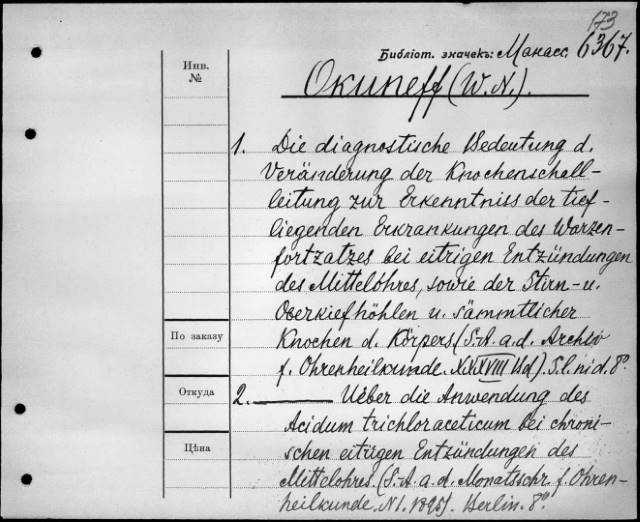 173
Библіот. значекъ: Манасс. 6367.
Инв.
№
Okuneff (W. N.).
1. Die diagnostische Bedeutung d.
Veränderung der Knochenschall-
leitung zur Erkenntniss der tief-
liegenden Erkrankungen des Warzen-
fortzatzes bei eitrigen Entzündungen
des Mittelohres, sowie der Stirn- u.
Oberkiefhöhlen u. sämmtlicher
По заказу
Knochen d. Körpers (S. A. a. d. Archiv
f. Ohrenheilkunde. XXXVIII Bd). S. l. ni d. 8°.
Откуда
2. ——— Ueber die Anwendung des
Acidum trichloraceticum bei chroni-
Цѣна
schen eitrigen Entzündungen des
Mittelohres. (S. A. a. d. Monatsschr. f. Ohren-
heilkunde. N 1. 1895). Berlin. 8°.